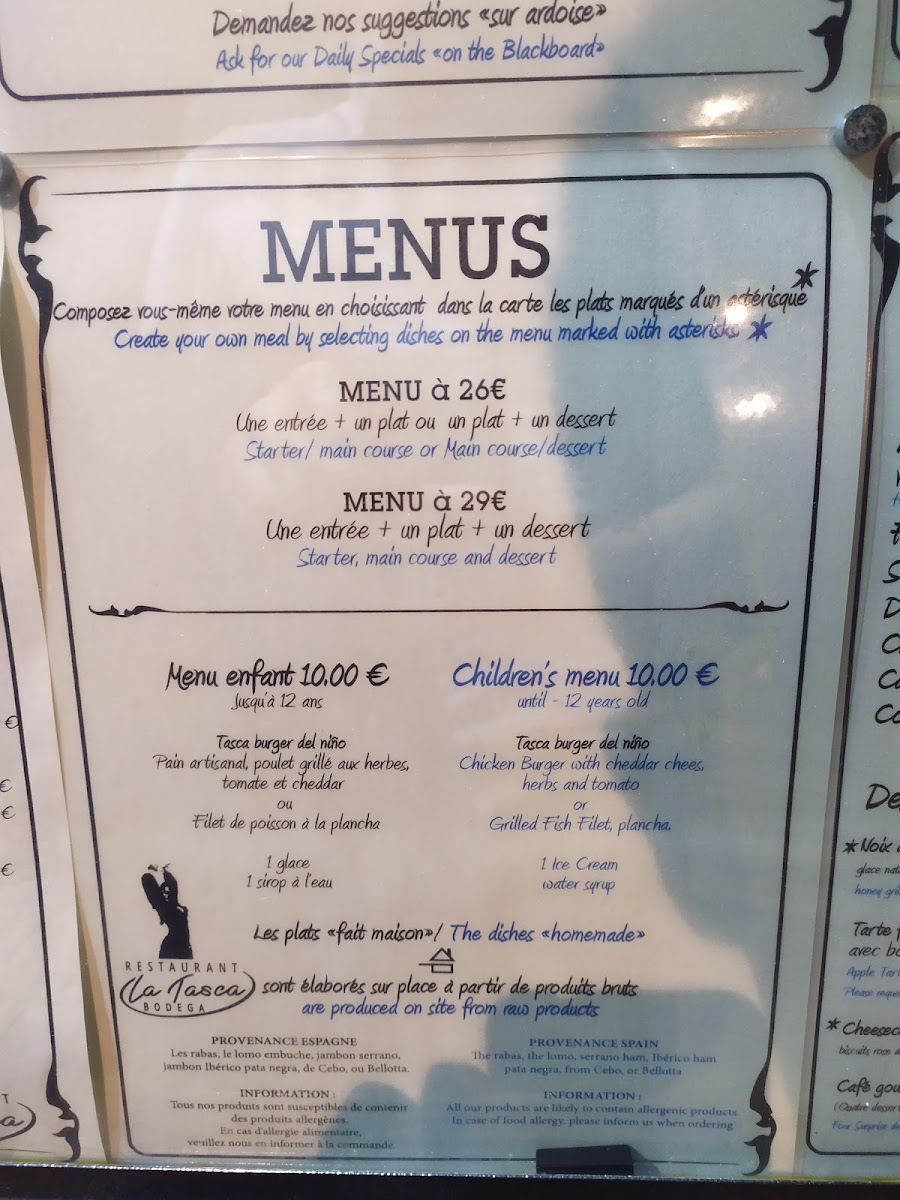 Demandez nos suggestions «sur ardoise»
Ask for our Daily Specials «on the Blackboard»
MENUS
Composez vous-même votre menu en choisissant dans la carte les plats marqués d'un astérisque*
Create your own meal by selecting dishes on the menu marked with asterisks *
MENU à 26€
Une entrée + un plat ou un plat + un dessert
Starter/ main course or Main course/dessert
MENU à 29€
Une entrée + un plat + un dessert
Starter, main course and dessert
Menu enfant 10.00 €
Jusqu'à 12 ans
Tasca burger del niño
Pain artisanal, poulet grillé aux herbes,
tomate et cheddar
ou
Filet de poisson à la plancha
1 glace
1 sirop à l'eau
Children's menu 10.00 €
until - 12 years old
Tasca burger del niño
Chicken Burger with cheddar chees,
herbs and tomato
or
Grilled Fish Filet, plancha.
1 Ice Cream
water syrup
Les plats «fait maison»/ The dishes «homemade»
sont élaborés sur place à partir de produits bruts
are produced on site from raw products
RESTAURANT
La Tasca
BODEGA
PROVENANCE ESPAGNE
Les rabas, le lomo embuche, jambon serrano,
jambon Ibérico pata negra, de Cebo, ou Bellotta.
INFORMATION :
Tous nos produits sont susceptibles de contenir
des produits allergènes.
En cas d'allergie alimentaire,
veuillez nous en informer à la commande
PROVENANCE SPAIN
The rabas, the lomo, serrano ham, Ibérico ham
pata negra, from Cebo, or Bellotta
INFORMATION :
All our products are likely to contain allergenic products.
In case of food allergy, please inform us when ordering
€
€
€
€
* Noix
glace
honey
Tarte
avec
Apple
Please
* 
biscuits rose
Café
Four Surprise